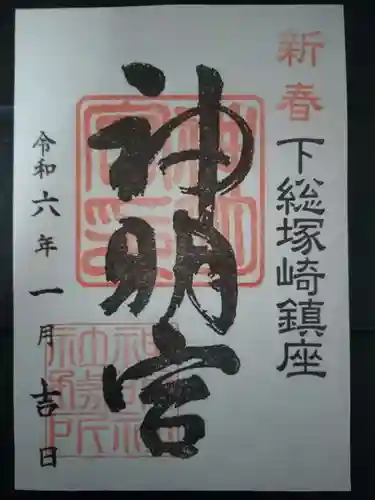 新春
下総塚崎鎮座
神明宮
令和六年一月吉日